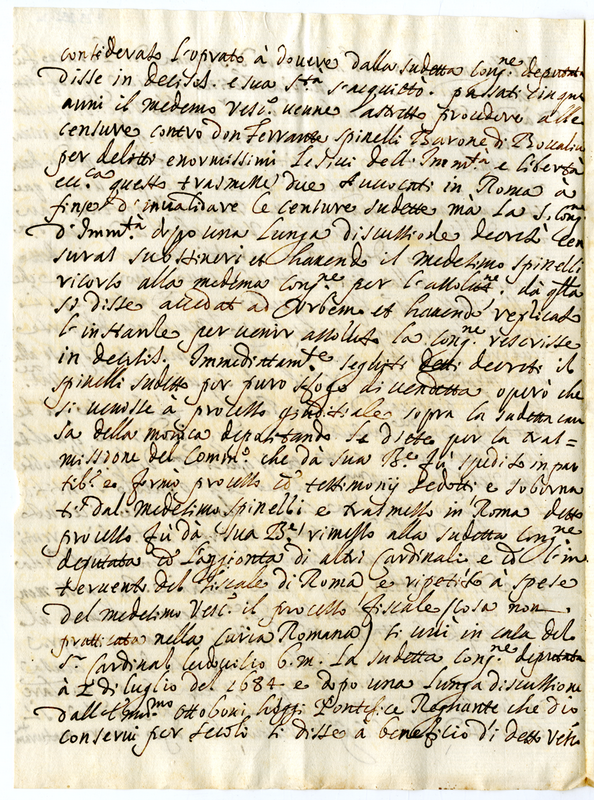 considerato l'oprato à dovere dalla sudetta Cong.ne deputata
disse in decisis. e sua S.tà s'acquietò. passati cinque
anni il medemo Vesc.o venne astretto procedere alle
censure contro don Ferrante Spinelli Barone di
per delitti enormissimi lesivi dell'Imm.tà e libertà
ecc.ca questo trasmette due Avvocati in Roma à
fine d'invalidare le censure sudette mà la S. Cong.
d'Imm.tà dopo una lunga discussione decretò Cen
suras substineri et havendo il medesimo Spinelli
ricorso alla medema Cong.ne per l'assolut.ne dà q.sta
si disse accedat ad Urbem et havendo replicato
l'instanze per venir assoluto la Cong.ne rescrisse
in decisis. Immediatam.te seguiti detti decreti il
Spinelli sudetto per puro sfogo di vendetta operò che
si venisse à processo giuditiale sopra la sudetta cau
sa della monica depositando Sc. per la tras=
missione del Comm.o che da sua B.e fù spedito in par
tib.s e formò processo cō testimonij sedotti e soborna
ti dal medesimo Spinelli e trasmesso in Roma detto
processo fù dà sua B.e rimesso alla sudetta Cong.ne
deputata cō l'aggionta di altri Cardinali e cō l'in
tervento del fiscale di Roma e ripetito à spese
del medesimo Vesc.o il processo fiscale (cosa non
pratticata nella Curia Romana) si unì in casa del
S.r Cardinal Ludovisio b.m. la sudetta Cong.ne deputata
à 2 di luglio del 1684 e dopo una lunga discussione
dall'Emin.mo Ottoboni hoggi Pontefice Regnante che Dio
conservi per secoli si disse à beneficio di detto Vesc.o